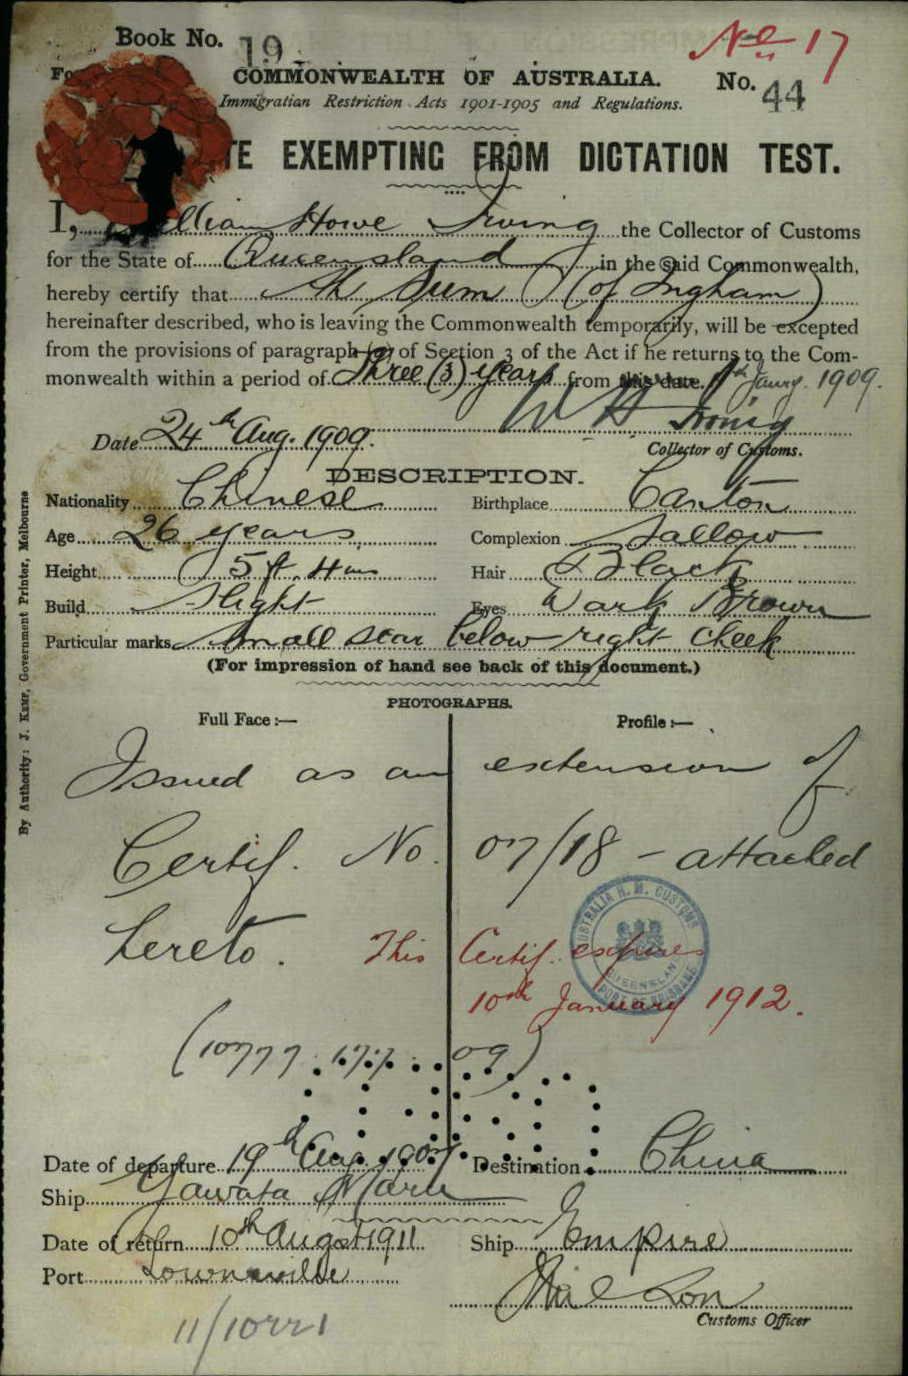 Book No. 19
No. 17
COMMONWEALTH OF AUSTRALIA.
No. 44
Immigration Restriction Acts 1901-1905 and Regulations.
TE EXEMPTING FROM DICTATION TEST.
I, William Howe Irving the Collector of Customs
for the State of Queensland in the said Commonwealth,
hereby certify that Ah Sum (of Ingham)
hereinafter described, who is leaving the Commonwealth temporarily, will be excepted
from the provisions of paragraph (a) of Section 3 of the Act if he returns to the Com-
monwealth within a period of Three (3) years from this date. Jany. 1909.
W H Irving
Date 24th Aug. 1909.
Collector of Customs.
DESCRIPTION.
Nationality Chinese.
Birthplace Canton
Age 26 years
Complexion Sallow
Height 5 ft. 4 ins
Hair Black
Build Slight
Eyes Dark Brown
Particular marks Small scar below right cheek
(For impression of hand see back of this document.)
PHOTOGRAPHS.
Full Face :—
Profile :—
Issued as an extension of
Certif. No. 07/18 - attached
hereto. This Certif. expires
10th January 1912.
AUSTRALIA H. M. CUSTOMS
QUEENSLAND
PORT OF BRISBANE
(10777. 17.7.09)
Date of departure 19th Aug 1907
Destination China
Ship Yawata Maru
Date of return 10th August 1911
Ship Empire
Port Townsville
Customs Officer
11/10221
By Authority: J. Kemp, Government Printer, Melbourne